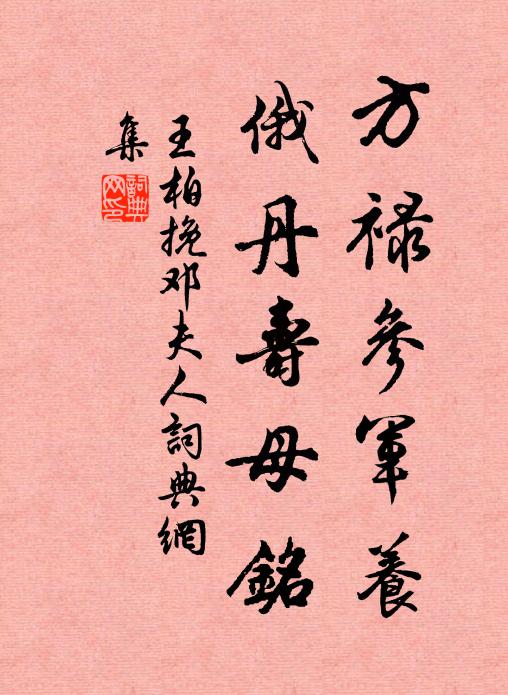 方祿參軍養
俄丹壽母銘
王柏挽邓夫人詞典網
集
詞典网印